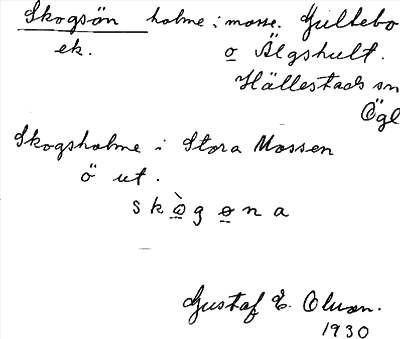 Skogsön holme i mosse. Gullebo
ek. o Älgshult.
Hällestads sn
Ögl
Skogsholme i Stora Mossen
ö ut.
s k ò̲ g ə̲ n a
Gustaf E. Olson.
1930